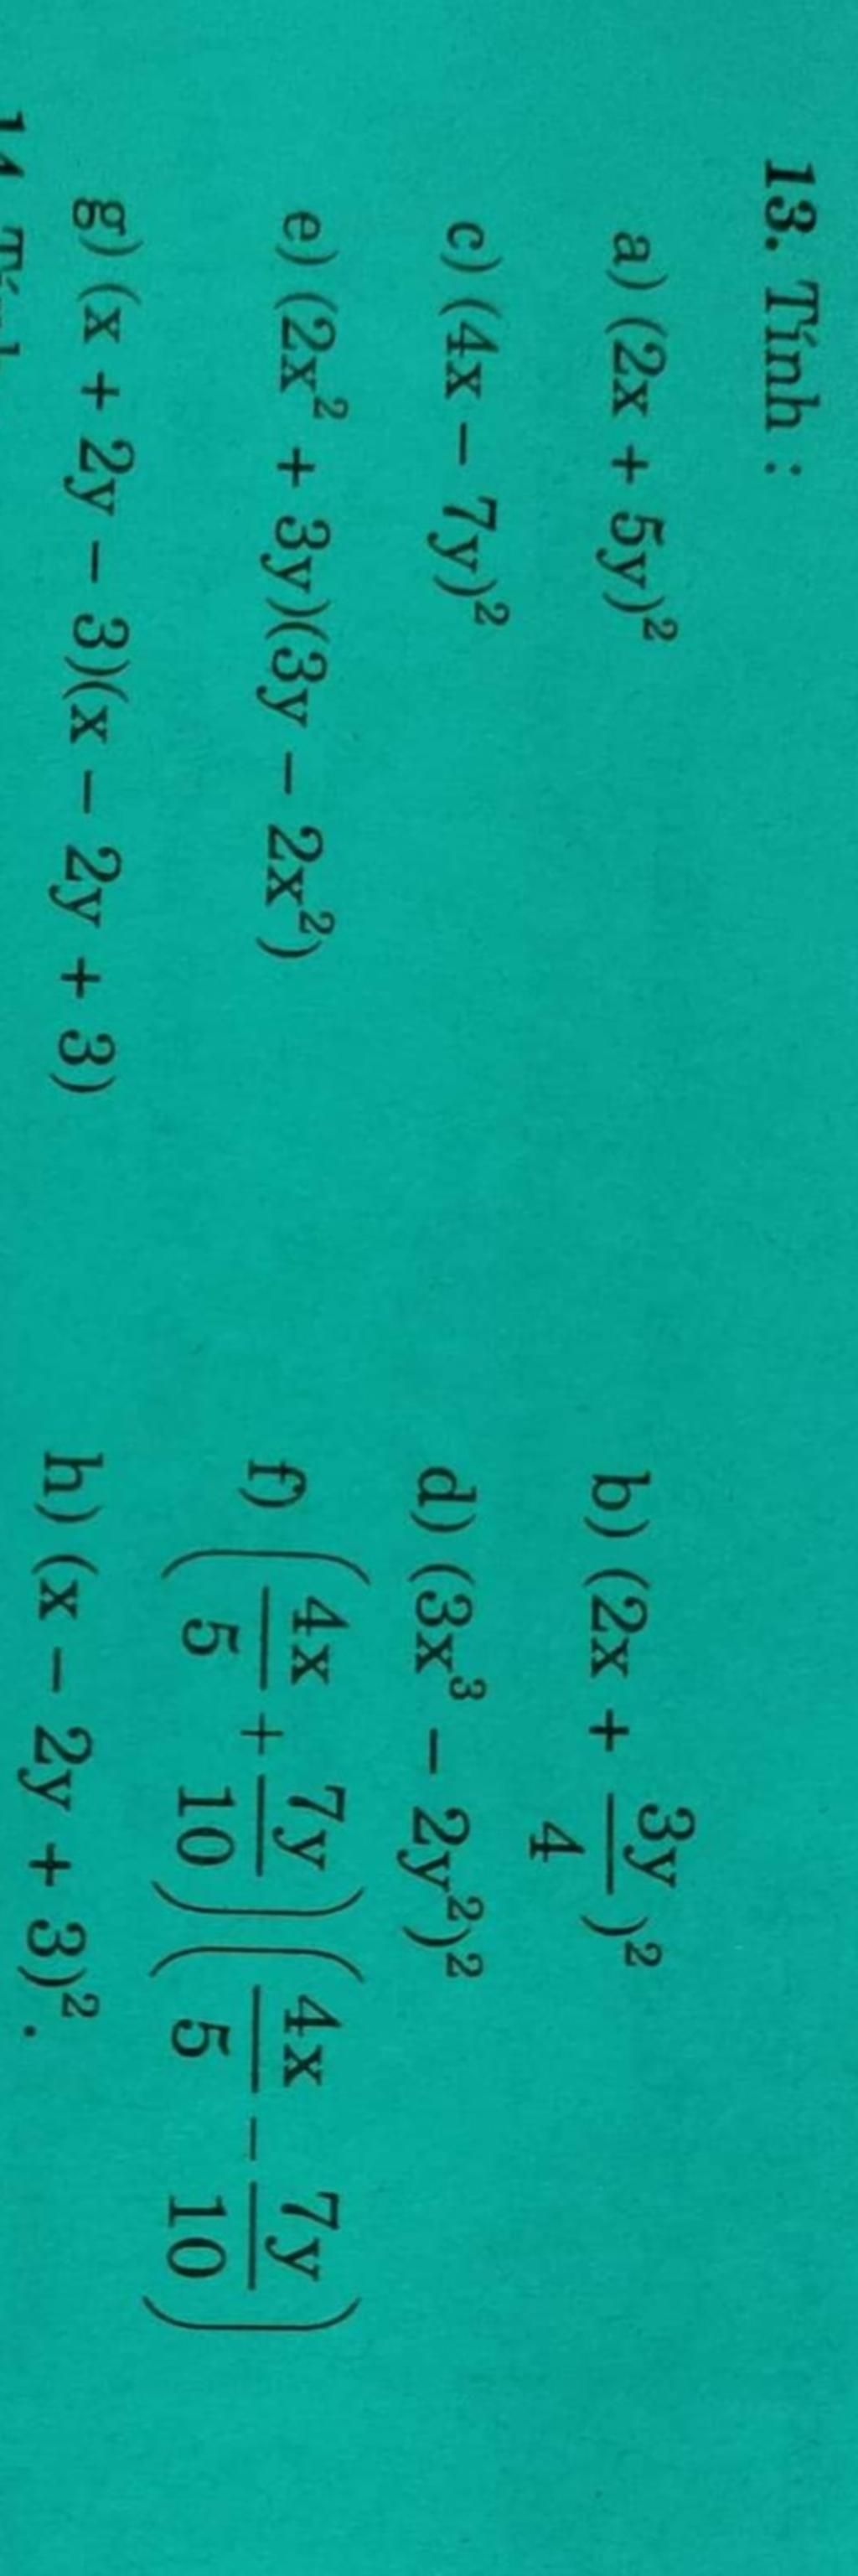 13. Tính :
a) (2x + 5y)² b) (2x + 3y/4)²
c) (4x – 7y)² d) (3x³ – 2y²)²
e) (2x² + 3y)(3y – 2x²) f) (4x/5 + 7y/10)(4x/5 – 7y/10)
g) (x + 2y – 3)(x – 2y + 3) h) (x – 2y + 3)².